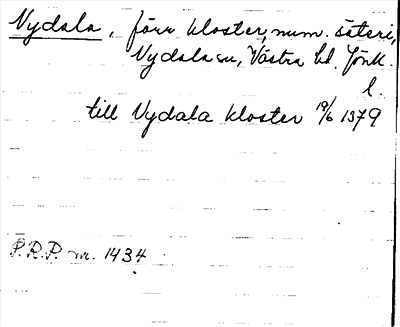 Nydala, förr kloster, num. säteri,
Nydala sn, Västra hd, Jönk.
l.
till Nydala kloster 19/6 1379
P.R.P. nr. 1434